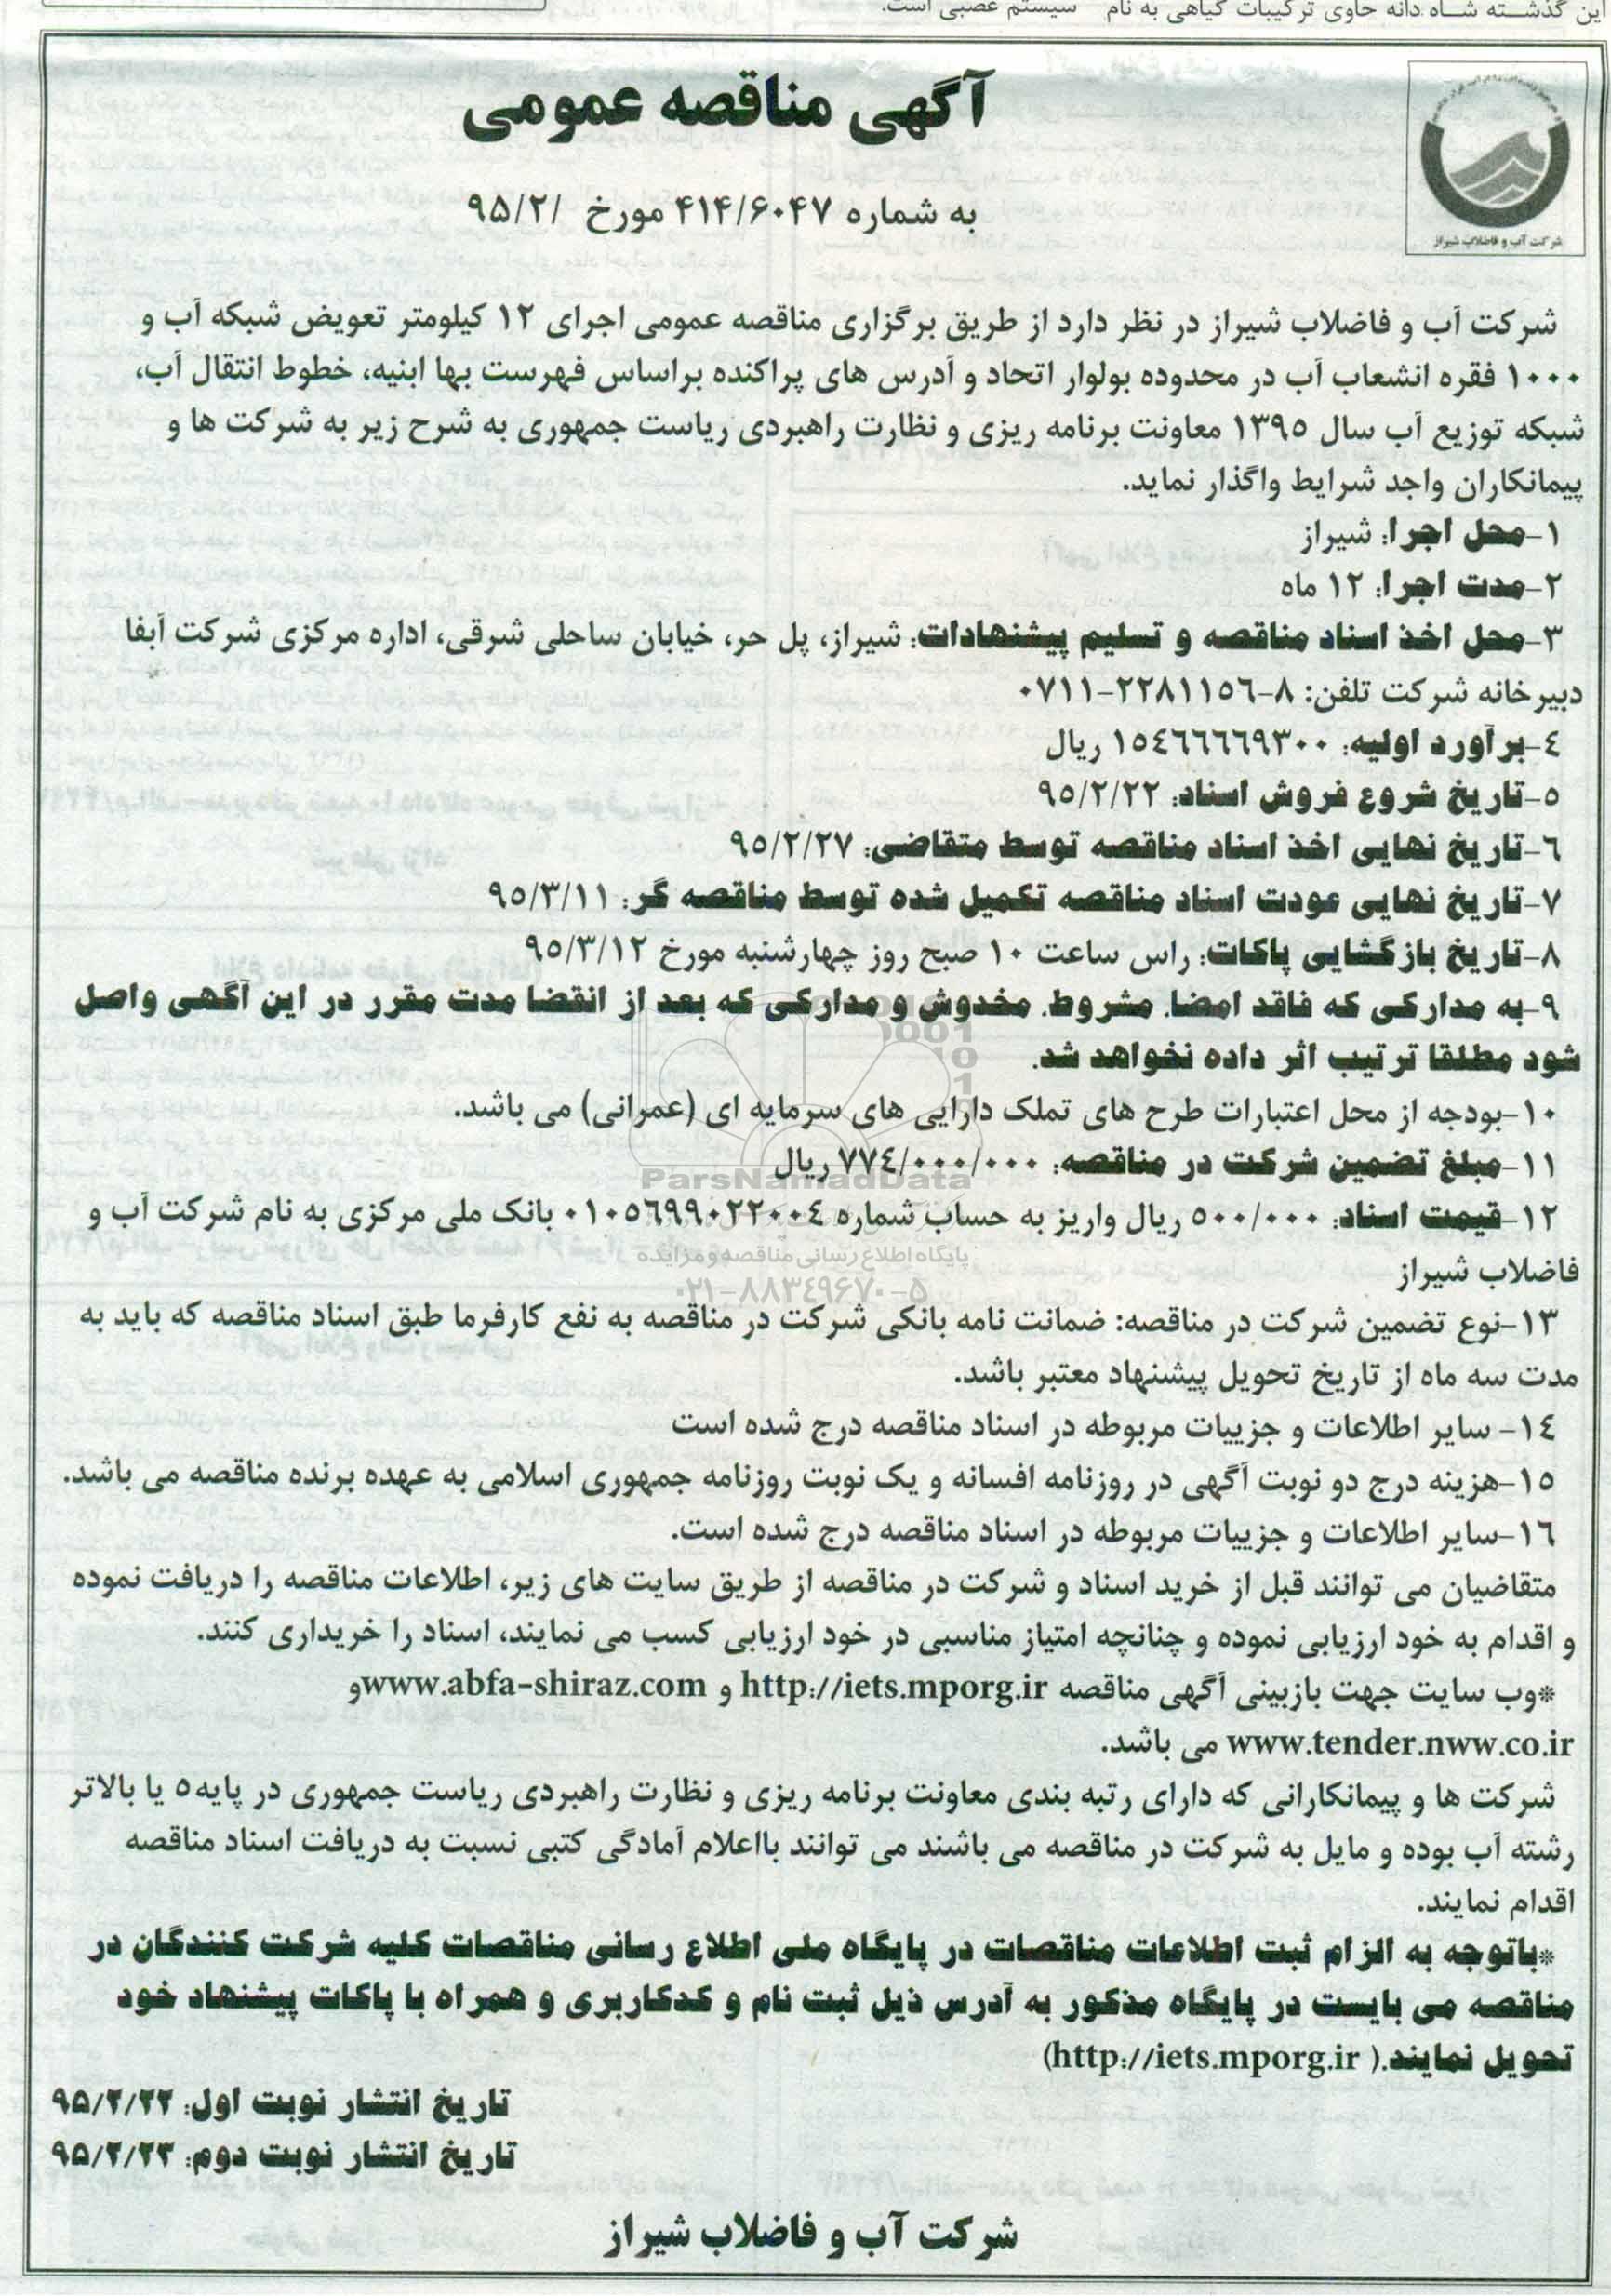 این گذشته شاه دانه حاوی ترکیبات گیاهی به نام سیستم عصبی است.
شرکت آب و فاضلاب شیراز
آگهی مناقصه عمومی
به شماره ۴۱۴/۶۰۴۷ مورخ /۹۵/۲
شرکت آب و فاضلاب شیراز در نظر دارد از طریق برگزاری مناقصه عمومی اجرای ۱۲ کیلومتر تعویض شبکه آب و
۱۰۰۰ فقره انشعاب آب در محدوده بولوار اتحاد و آدرس های پراکنده براساس فهرست بها ابنیه، خطوط انتقال آب،
شبکه توزیع آب سال ۱۳۹۵ معاونت برنامه ریزی و نظارت راهبردی ریاست جمهوری به شرح زیر به شرکت ها و
پیمانکاران واجد شرایط واگذار نماید.
۱-محل اجرا: شیراز
۲-مدت اجرا: ۱۲ ماه
۳-محل اخذ اسناد مناقصه و تسلیم پیشنهادات: شیراز، پل حر، خیابان ساحلی شرقی، اداره مرکزی شرکت آبفا
دبیرخانه شرکت تلفن: ۸-۲۲۸۱۱۵۶-۰۷۱۱
۴-برآورد اولیه: ۱۵۴۶۶۶۶۹۳۰۰ ریال
۵-تاریخ شروع فروش اسناد: ۹۵/۲/۲۲
۶-تاریخ نهایی اخذ اسناد مناقصه توسط متقاضی: ۹۵/۲/۲۷
۷-تاریخ نهایی عودت اسناد مناقصه تکمیل شده توسط مناقصه گر: ۹۵/۳/۱۱
۸-تاریخ بازگشایی پاکات: راس ساعت ۱۰ صبح روز چهارشنبه مورخ ۹۵/۳/۱۲
۹-به مدارکی که فاقد امضا، مشروط، مخدوش و مدارکی که بعد از انقضا مدت مقرر در این آگهی واصل
شود مطلقا ترتیب اثر داده نخواهد شد.
۱۰-بودجه از محل اعتبارات طرح های تملک دارایی های سرمایه ای (عمرانی) می باشد.
۱۱-مبلغ تضمین شرکت در مناقصه: ۷۷۴/۰۰۰/۰۰۰ ریال
ParsNamadData
۱۲-قیمت اسناد: ۵۰۰/۰۰۰ ریال واریز به حساب شماره ۰۱۰۵۶۹۹۰۲۲۰۰۴ بانک ملی مرکزی به نام شرکت آب و
پایگاه اطلاع رسانی مناقصه و مزایده
فاضلاب شیراز
۰۲۱-۸۸۳۴۹۶۷۰-۵
۱۳-نوع تضمین شرکت در مناقصه: ضمانت نامه بانکی شرکت در مناقصه به نفع کارفرما طبق اسناد مناقصه که باید به
مدت سه ماه از تاریخ تحویل پیشنهاد معتبر باشد.
۱۴- سایر اطلاعات و جزییات مربوطه در اسناد مناقصه درج شده است
۱۵-هزینه درج دو نوبت آگهی در روزنامه افسانه و یک نوبت روزنامه جمهوری اسلامی به عهده برنده مناقصه می باشد.
۱۶-سایر اطلاعات و جزییات مربوطه در اسناد مناقصه درج شده است.
متقاضیان می توانند قبل از خرید اسناد و شرکت در مناقصه از طریق سایت های زیر، اطلاعات مناقصه را دریافت نموده
و اقدام به خود ارزیابی نموده و چنانچه امتیاز مناسبی در خود ارزیابی کسب می نمایند، اسناد را خریداری کنند.
*وب سایت جهت بازبینی آگهی مناقصه http://iets.mporg.ir و www.abfa-shiraz.comو
www.tender.nww.co.ir می باشد.
شرکت ها و پیمانکارانی که دارای رتبه بندی معاونت برنامه ریزی و نظارت راهبردی ریاست جمهوری در پایه۵ یا بالاتر
رشته آب بوده و مایل به شرکت در مناقصه می باشند می توانند بااعلام آمادگی کتبی نسبت به دریافت اسناد مناقصه
اقدام نمایند.
*باتوجه به الزام ثبت اطلاعات مناقصات در پایگاه ملی اطلاع رسانی مناقصات کلیه شرکت کنندگان در
مناقصه می بایست در پایگاه مذکور به آدرس ذیل ثبت نام و کدکاربری و همراه با پاکات پیشنهاد خود
تحویل نمایند.( http://iets.mporg.ir)
تاریخ انتشار نوبت اول: ۹۵/۲/۲۲
تاریخ انتشار نوبت دوم: ۹۵/۲/۲۳
شرکت آب و فاضلاب شیراز